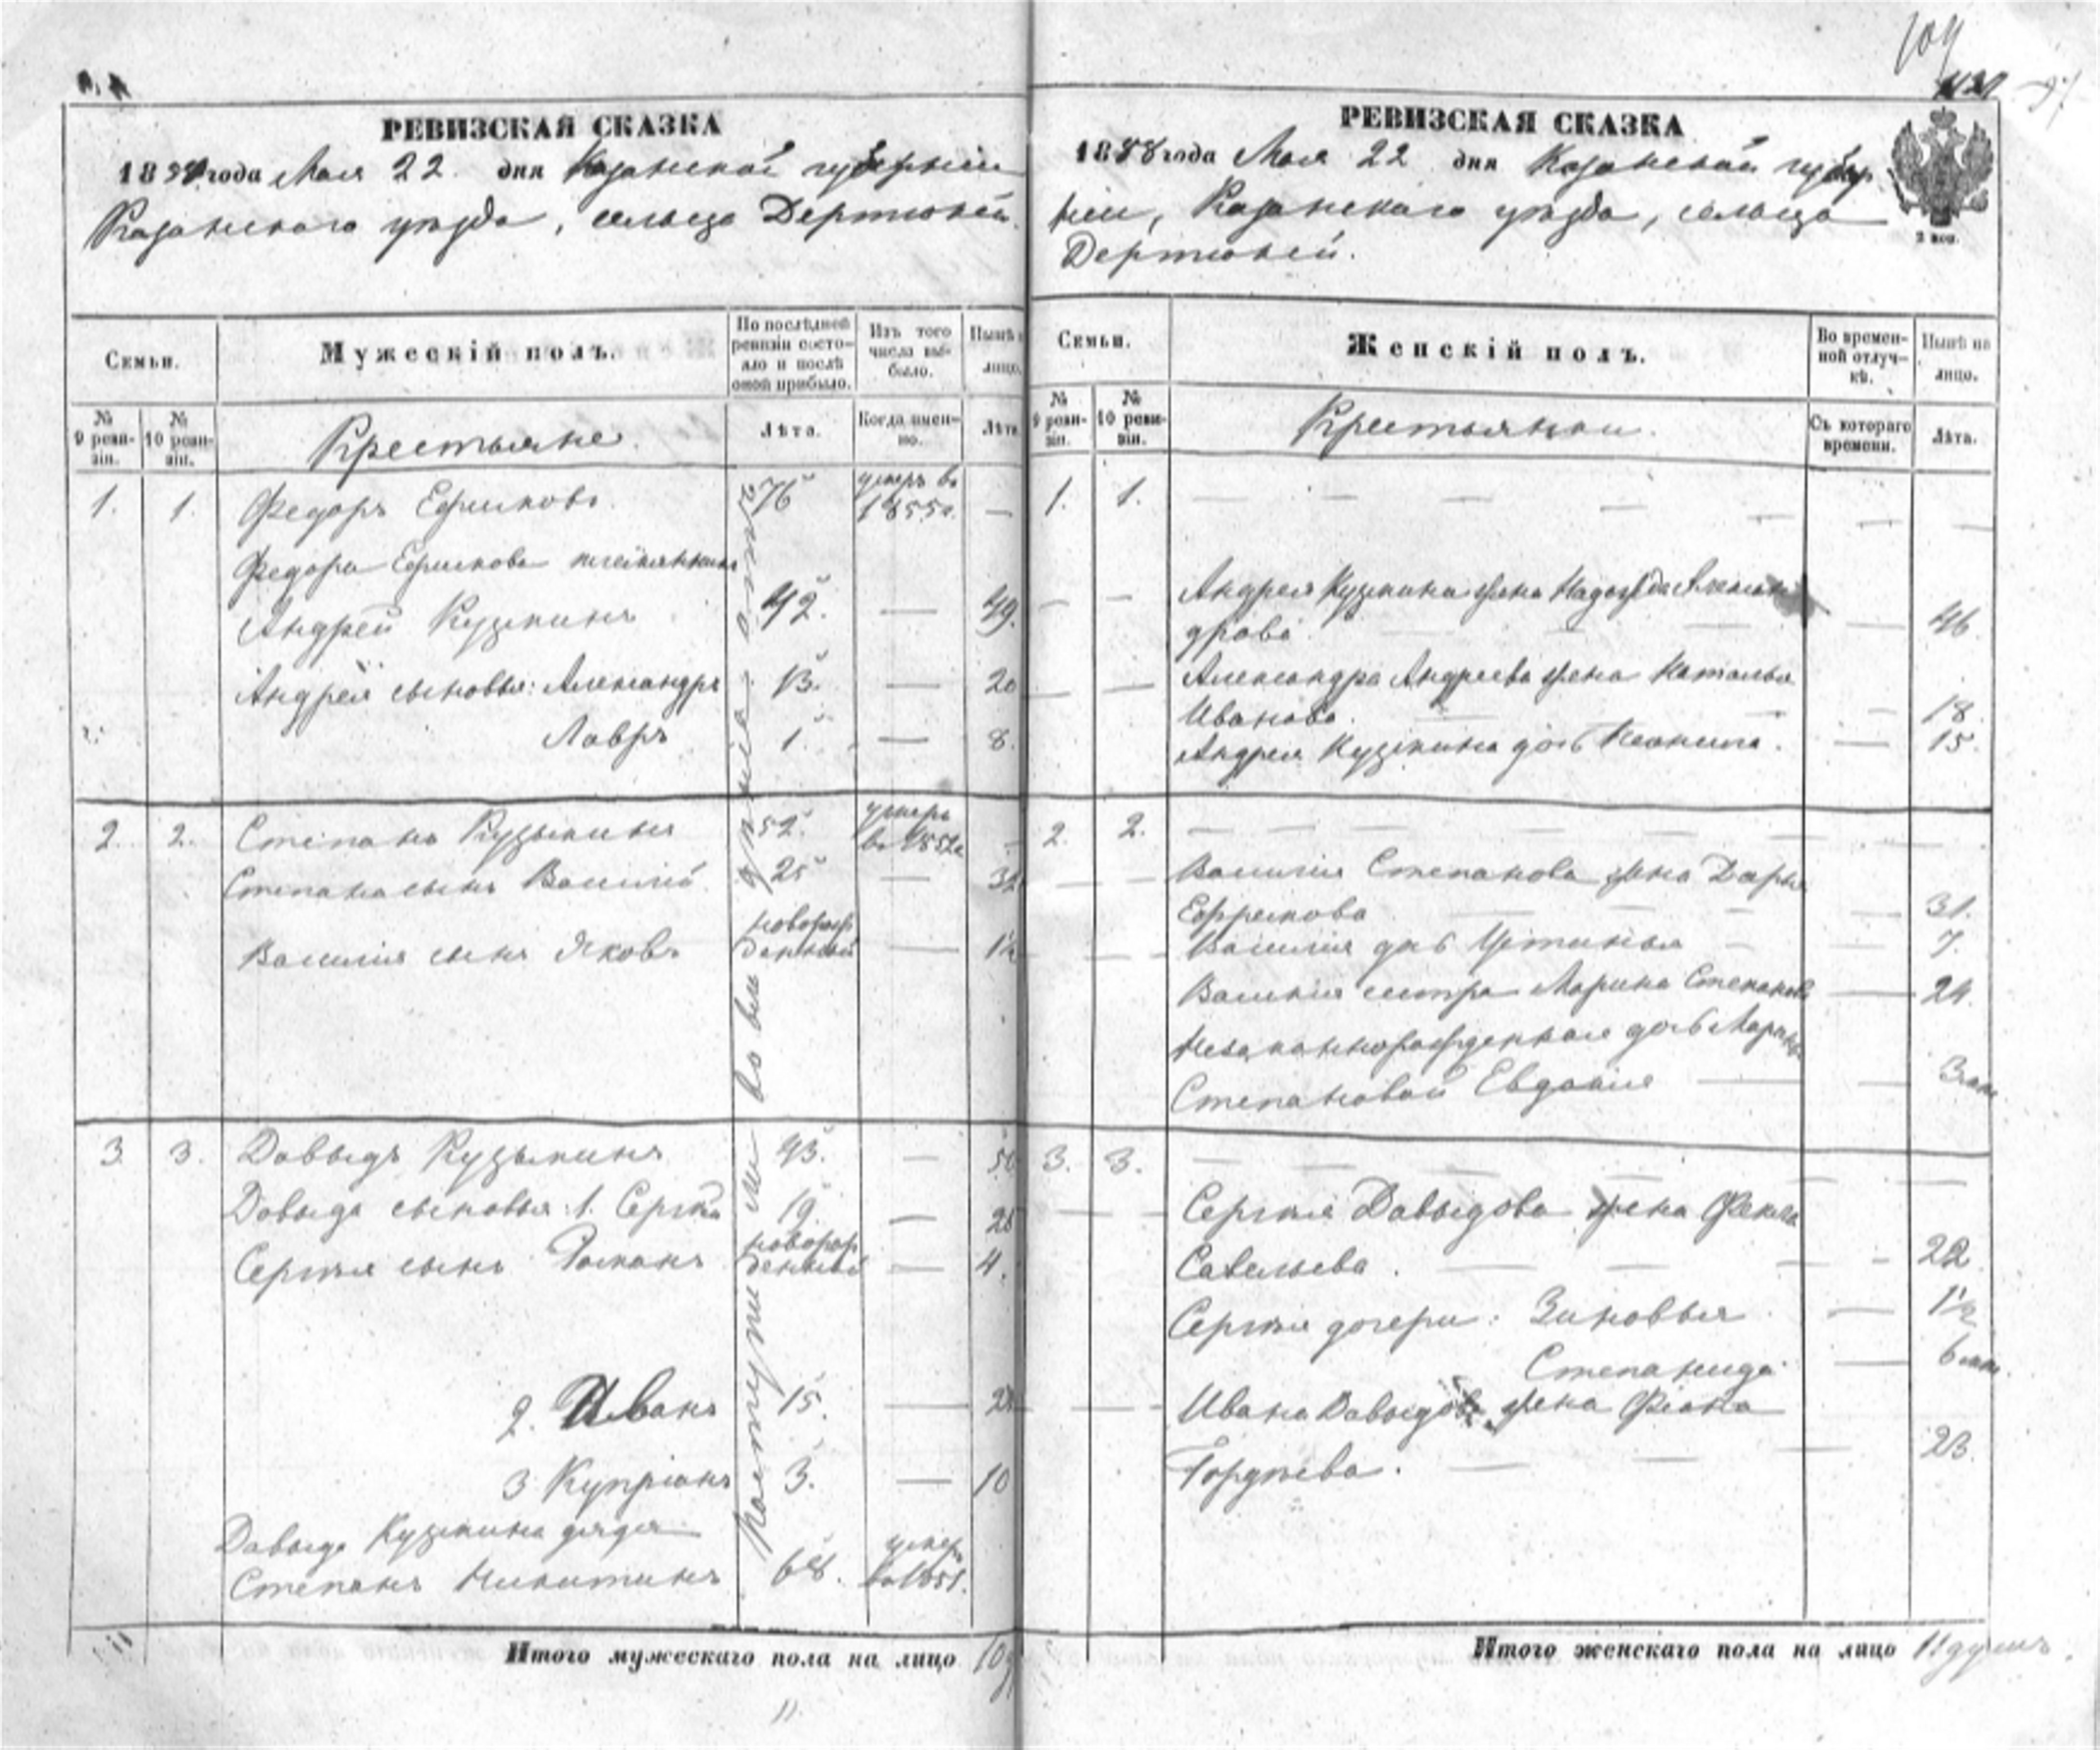 РЕВИЗСКАЯ СКАЗКА
года Мая 22 дня Казанской губерніи
Казанскаго уѣзда, сельца Дертюлей
Семьи.
Мужескій полъ.
По послѣдней ревизіи состояло и послѣ оной прибыло.
Изъ того числа выбыло.
Нынѣ
лицо.
№ 9 ревизіи.
№ 10 ревизіи.
Крестьяне
Лѣта.
Когда именно.
Лѣта
1. 1. Федоръ Ефимовъ 76 умеръ въ 1855 г. —
Федора Ефимова племянникъ
Андрей Кузминъ 42. — 49.
Андрея сыновья: Александръ 13. — 20
Лавръ 1. — 8.
2. 2. Степанъ Кузьминъ 52. умеръ въ 1852 г. —
Степана сынъ Василій 25 —
Василія сынъ Яковъ новорожденный —
3 3. Давыдъ Кузьминъ 43. —
Давыда сыновья: 1. Сергѣй 19. —
Сергѣя сынъ Романъ новорожденный — 4.
2. Иванъ 15. —
3 Купріанъ 3. — 10
Давыда Кузмина дядя
Степанъ Никитинъ 68. умеръ
Итого мужескаго пола на лицо 10
11
РЕВИЗСКАЯ СКАЗКА
1858 года Мая 22 дня Казанской губер
ніи, Казанскаго уѣзда, сельца
Дертюлей.
2 коп.
Семьи.
Женскій полъ.
Во временной отлучкѣ.
Нынѣ на лицо.
№ 9 ревизіи.
№ 10 ревизіи.
Крестьянки.
Съ котораго времени.
Лѣта.
1. 1. — — — —
Андрея Кузмина жена Надежда Алексан
дрова — 46
Александра Андреева жена Наталья
Иванова. — 18.
Андрея Кузмина дочь — 15.
2. 2. — — — —
Василія Степанова жена Дарья
Ефремова — 31.
Василія дочь Устинья — 7.
Василія сестра Марина Степанова — 24.
Незаконнорожденная дочь Марины
Степановой Евдокія —
3. 3. — — — —
Сергѣя Давыдова жена Фекла
Савельева. — 22
Сергѣя дочери: Зиновья — 1½
Степанида —
Ивана Давыдова жена Фіона
Гордѣева. — 23.
Итого женскаго пола на лицо 11 душъ